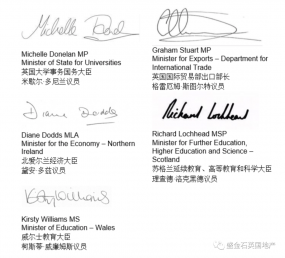 Michelle Donelan MP
Minister of State for Universities
英国大学事务国务大臣
米歇尔·多尼兰议员
Graham Stuart MP
Minister for Exports – Department for
International Trade
英国国际贸易部出口部长
格雷厄姆·斯图尔特议员
Diane Dodds
Diane Dodds MLA
Minister for the Economy – Northern
Ireland
北爱尔兰经济大臣
黛安·多兹议员
Richard Lochhead
Richard Lochhead MSP
Minister for Further Education,
Higher Education and Science –
Scotland
苏格兰延续教育、高等教育和科学大臣
理查德·洛克黑德议员
Kirsty Williams MS
Minister of Education – Wales
威尔士教育大臣
柯斯蒂·威廉姆斯议员